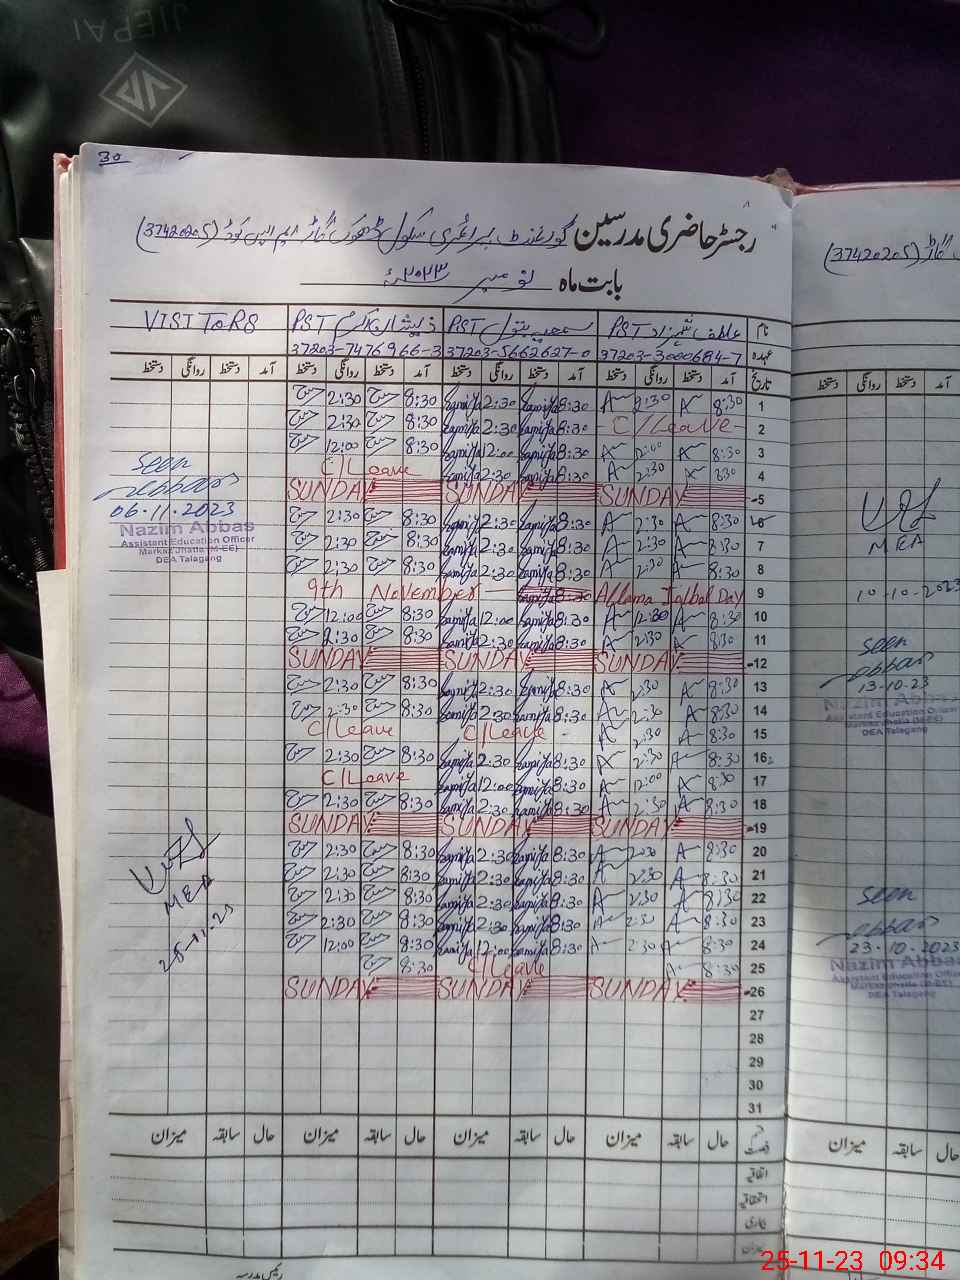 JIEPAI
30
رجسٹر حاضری مدرسین گورنمنٹ پرائمری سکول ڈھوک (37420205)
بابت ماہ نومبر ۲۰۲۳ء
نام عاطف شہزاد PST سمیعہ بتول PST ذیشان اکرم PST VISITORS
عہدہ 37203-3000684-7 37203-5662627-0 37203-7476966-3
تاریخ آمد دستخط روانگی دستخط آمد دستخط روانگی دستخط آمد دستخط روانگی دستخط آمد دستخط روانگی دستخط
1 8:30 2:30 Samiya 8:30 Samiya 2:30 8:30 2:30
2 C/Leave Samiya 8:30 Samiya 2:30 8:30 2:30
3 8:30 12:00 Samiya 8:30 Samiya 12:00 8:30 12:00
4 8:30 2:30 Samiya 8:30 Samiya 2:30 C/Leave
5 SUNDAY SUNDAY SUNDAY
6 8:30 2:30 Samiya 8:30 Samiya 2:30 8:30 2:30
7 8:30 2:30 Samiya 8:30 Samiya 2:30 8:30 2:30
8 8:30 2:30 Samiya 8:30 Samiya 2:30 8:30 2:30
9 9th November Allama Iqbal Day
10 8:30 12:30 Samiya 8:30 Samiya 12:00 8:30 12:00
11 8:30 2:30 Samiya 8:30 Samiya 2:30 8:30 2:30
12 SUNDAY SUNDAY SUNDAY
13 8:30 2:30 Samiya 8:30 Samiya 2:30 8:30 2:30
14 8:30 2:30 Samiya 8:30 Samiya 2:30 8:30 2:30
15 8:30 2:30 C/Leave C/Leave
16 8:30 2:30 Samiya 8:30 Samiya 2:30 8:30 2:30
17 8:30 12:00 Samiya 8:30 Samiya 12:00 C/Leave
18 8:30 2:30 Samiya 8:30 Samiya 2:30 8:30 2:30
19 SUNDAY SUNDAY SUNDAY
20 8:30 2:30 Samiya 8:30 Samiya 2:30 8:30 2:30
21 8:30 2:30 Samiya 8:30 Samiya 2:30 8:30 2:30
22 8:30 2:30 Samiya 8:30 Samiya 2:30 8:30 2:30
23 8:30 2:30 Samiya 8:30 Samiya 2:30 8:30 2:30
24 8:30 2:30 Samiya 8:30 Samiya 12:00 8:30 12:00
25 8:30 C/Leave 8:30
26 SUNDAY SUNDAY SUNDAY
27
28
29
30
31
seen
Abbas
06.11.2023
Nazim Abbas
Assistant Education Officer
Markaz Jhatla (M-EE)
DEA Talagang
MEA
25-11-23
حال سابقہ میزان حال سابقہ میزان حال سابقہ میزان حال سابقہ میزان
اتفاقیہ
استحقاقیہ
بیماری
میزان
رئیس مدرسہ
(37420205)
آمد دستخط روانگی دستخط
MEA
10-10-2023
seen
Abbas
13-10-23
Nazim Abbas
Assistant Education Officer
Markaz Jhatla (M-EE)
DEA Talagang
seen
Abbas
23.10.2023
Nazim Abbas
Assistant Education Officer
Markaz Jhatla (M-EE)
DEA Talagang
حال سابقہ میزان
25-11-23 09:34